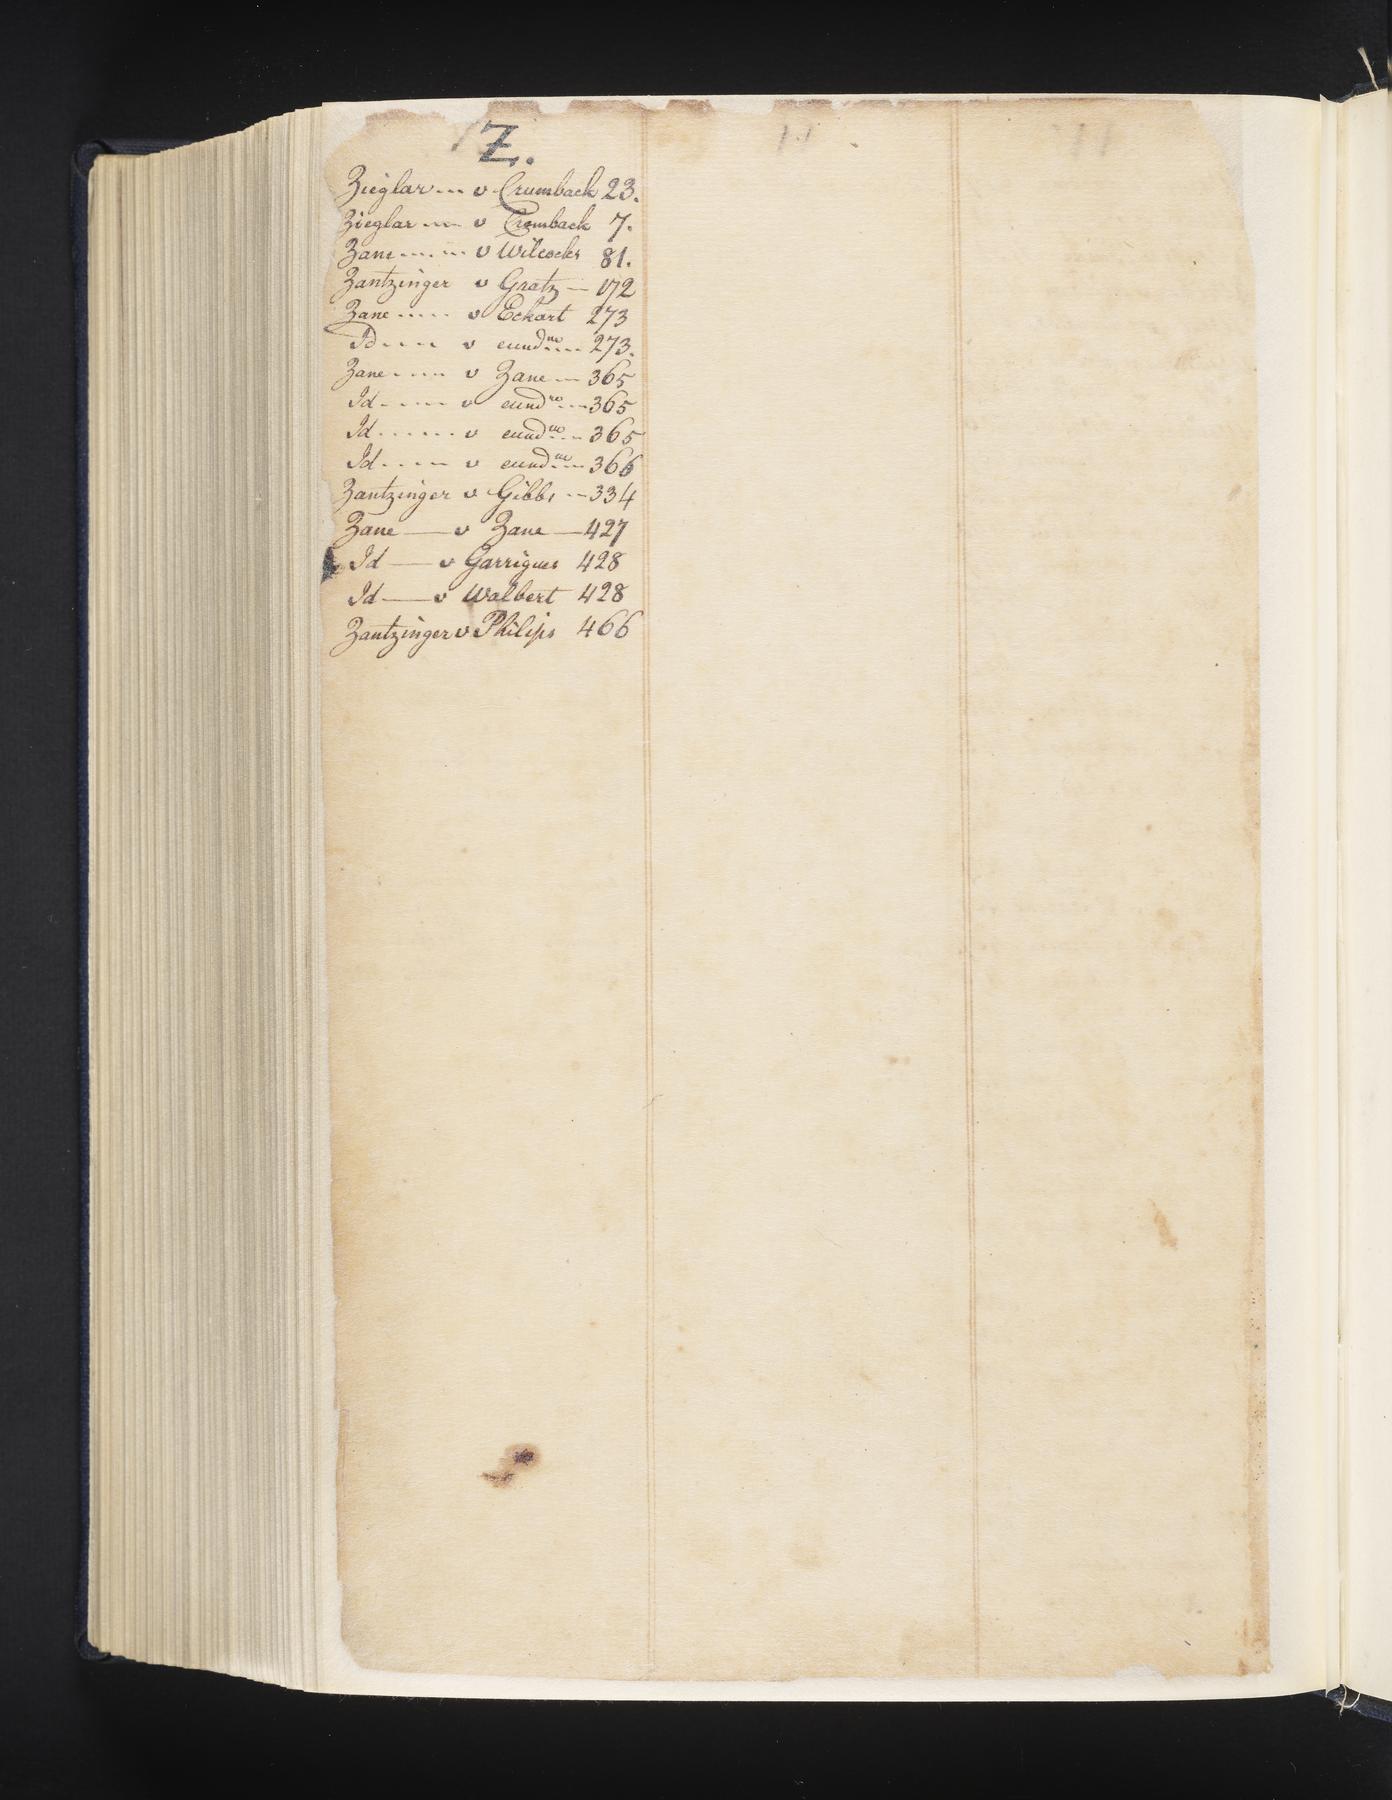 Z.
Zieglar --- v Crumback 23.
Zieglar --- v Crumback 7.
Zane ------ v Wilcocks 81.
Zantzinger v Gratz — 172
Zane ----- v Eckart 273
Id ---- v eundm ---- 273.
Zane ---- v Zane --- 365
Id ----- v eundm --- 365
Id ------ v eundm ---- 365
Id ---- v eundm ---- 366
Zantzinger v Gibbs -- 334
Zane — v Zane — 427
Id — v Garrigues 428
Id — v Walbert 428
Zantzinger v Philips 466